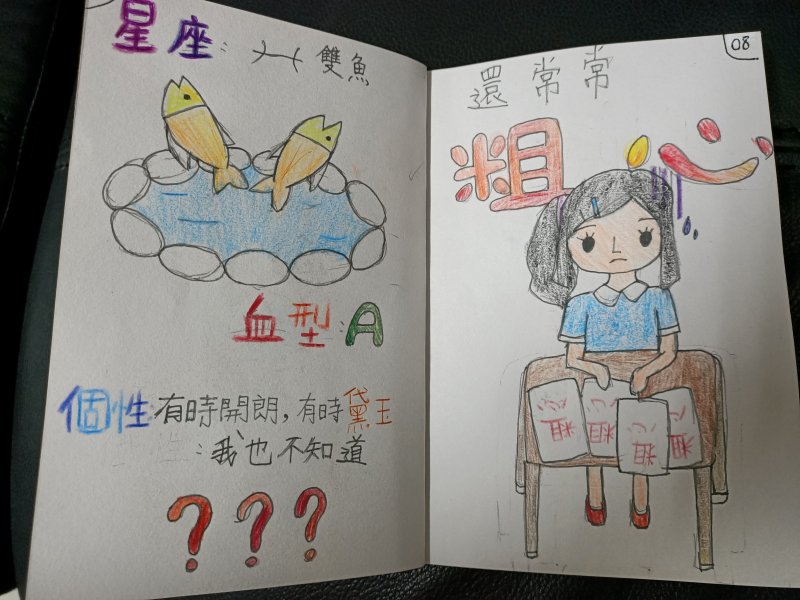 星座：雙魚
血型：A
個性：有時開朗，有時黛玉
：我也不知道
？？？
08
還常常
粗心
粗心 粗心 粗心 粗心